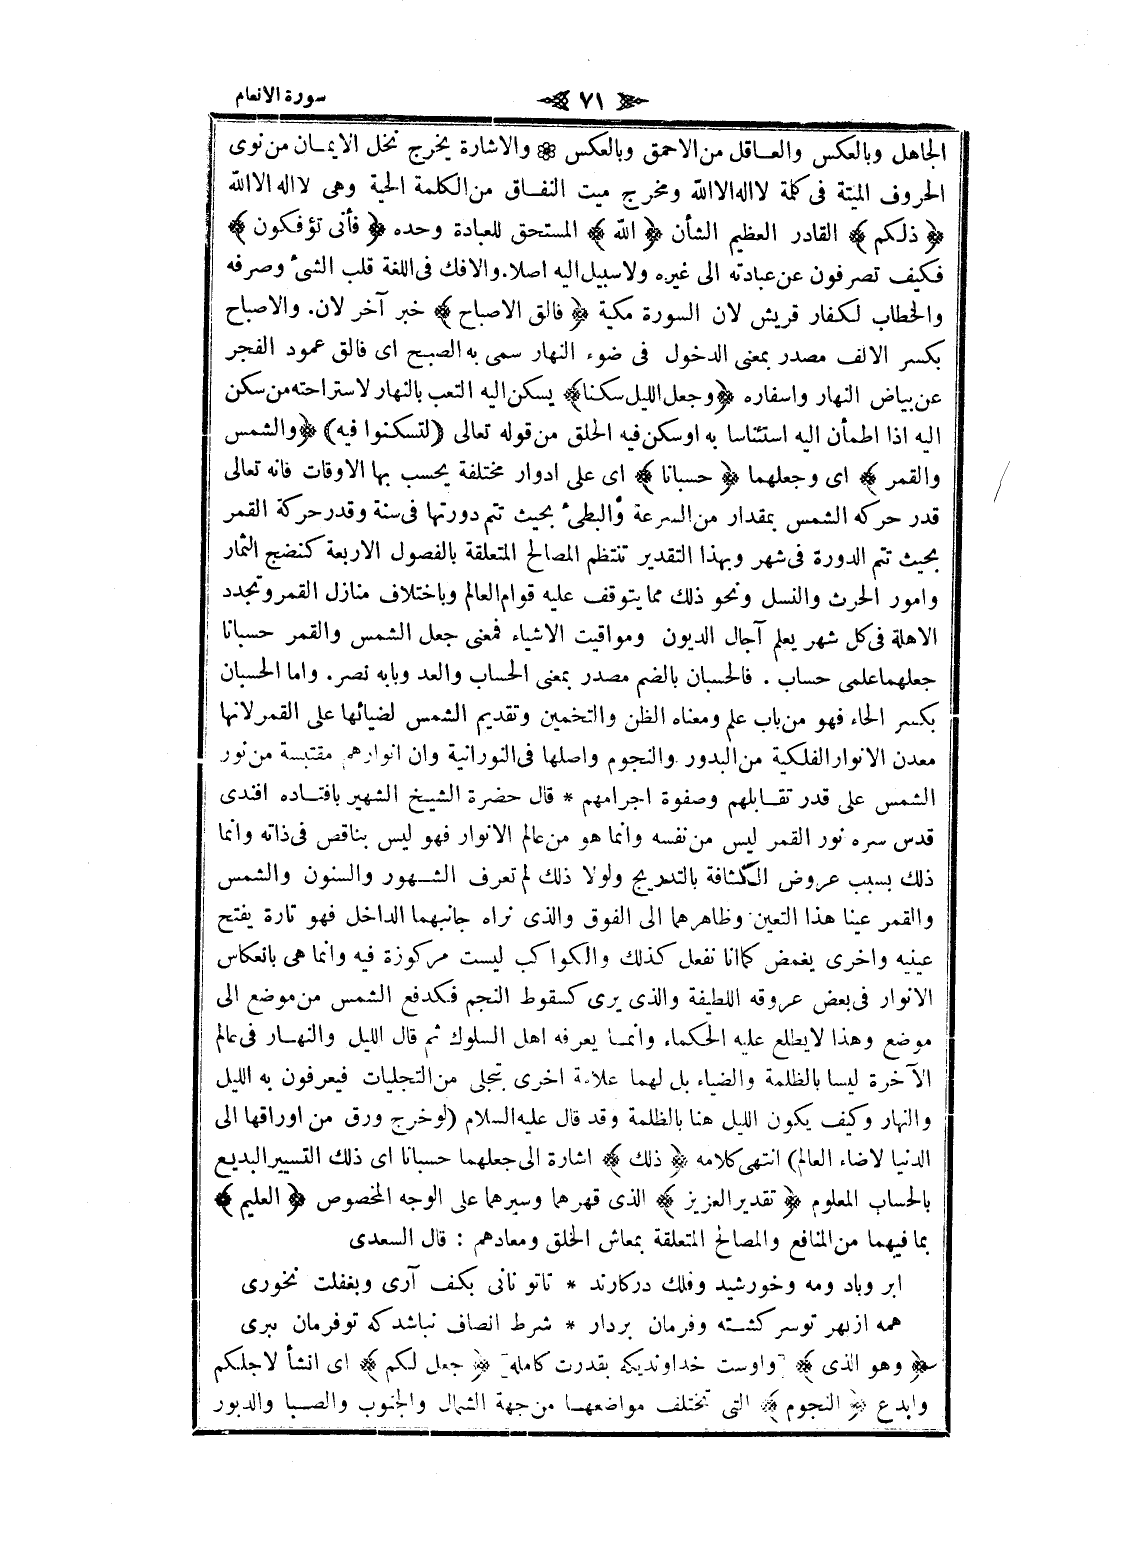 سورة الانعام
٧١
الجاهل وبالعكس والعاقل من الاحمق وبالعكس ❁ والاشارة يخرج نخل الايمان من نوى
الحروف الميتة فى كلمة لااله الاالله ومخرج ميت النفاق من الكلمة الحية وهى لااله الاالله
﴿ ذلكم ﴾ القادر العظيم الشأن ﴿ الله ﴾ المستحق للعبادة وحده ﴿ فأنى تؤفكون ﴾
فكيف تصرفون عن عبادته الى غيره ولاسبيل اليه اصلا. والافك فى اللغة قلب الشئ وصرفه
والخطاب لكفار قريش لان السورة مكية ﴿ فالق الاصباح ﴾ خبر آخر لان. والاصباح
بكسر الالف مصدر بمعنى الدخول فى ضوء النهار سمى به الصبح اى فالق عمود الفجر
عن بياض النهار واسفاره ﴿وجعل الليل سكنا﴾ يسكن اليه التعب بالنهار لاستراحته من سكن
اليه اذا اطمأن اليه استئناسا به اوسكن فيه الخلق من قوله تعالى (لتسكنوا فيه) ﴿والشمس
والقمر ﴾ اى وجعلهما ﴿ حسبانا ﴾ اى على ادوار مختلفة يحسب بها الاوقات فانه تعالى
قدر حركه الشمس بمقدار من السرعة والبطئ بحيث تتم دورتها فى سنة وقدر حركة القمر
بحيث تتم الدورة فى شهر وبهذا التقدير تنتظم المصالح المتعلقة بالفصول الاربعة كنضج الثمار
وامور الحرث والنسل ونحو ذلك مما يتوقف عليه قوام العالم وباختلاف منازل القمر وتجدد
الاهلة فى كل شهر يعلم آجال الديون ومواقيت الاشياء فمعنى جعل الشمس والقمر حسبانا
جعلهما علمى حساب . فالحسبان بالضم مصدر بمعنى الحساب والعد وبابه نصر. واما الحسبان
بكسر الحاء فهو من باب علم ومعناه الظن والتخمين وتقديم الشمس لضيائها على القمر لانها
معدن الانوار الفلكية من البدور والنجوم واصلها فى النورانية وان انوارهم مقتبسة من نور
الشمس على قدر تقابلهم وصفوة اجرامهم * قال حضرة الشيخ الشهير بافتاده افندى
قدس سره نور القمر ليس من نفسه وانما هو من عالم الانوار فهو ليس بناقص فى ذاته وانما
ذلك بسبب عروض الكثافة بالتدريج ولولا ذلك لم تعرف الشهور والسنون والشمس
والقمر عينا هذا التعين وظاهرهما الى الفوق والذى نراه جانبهما الداخل فهو تارة يفتح
عينيه واخرى يغمض كماانا نفعل كذلك والكواكب ليست مركوزة فيه وانما هى بانعكاس
الانوار فى بعض عروقه اللطيفة والذى يرى كسقوط النجم فكدفع الشمس من موضع الى
موضع وهذا لايطلع عليه الحكماء وانما يعرفه اهل السلوك ثم قال الليل والنهار فى عالم
الآخرة ليسا بالظلمة والضياء بل لهما علامة اخرى تجلى من التجليات فيعرفون به الليل
والنهار وكيف يكون الليل هنا بالظلمة وقد قال عليه السلام (لوخرج ورق من اوراقها الى
الدنيا لاضاء العالم) انتهى كلامه ﴿ ذلك ﴾ اشارة الى جعلهما حسبانا اى ذلك التسيير البديع
بالحساب المعلوم ﴿ تقدير العزيز ﴾ الذى قهرهما وسيرهما على الوجه المخصوص ﴿ العليم ﴾
بما فيهما من المنافع والمصالح المتعلقة بمعاش الخلق ومعادهم : قال السعدى
ابر وباد ومه وخورشيد وفلك دركارند * تاتو نانى بكف آرى وبغفلت نخورى
همه ازبهر توسر كشته وفرمان بردار * شرط انصاف نباشد كه توفرمان نبرى
﴿ وهو الذى ﴾ [واوست خداونديكه بقدرت كامله] ﴿ جعل لكم ﴾ اى انشأ لاجلكم
وابدع ﴿ النجوم ﴾ التى تختلف مواضعها من جهة الشمال والجنوب والصبا والدبور